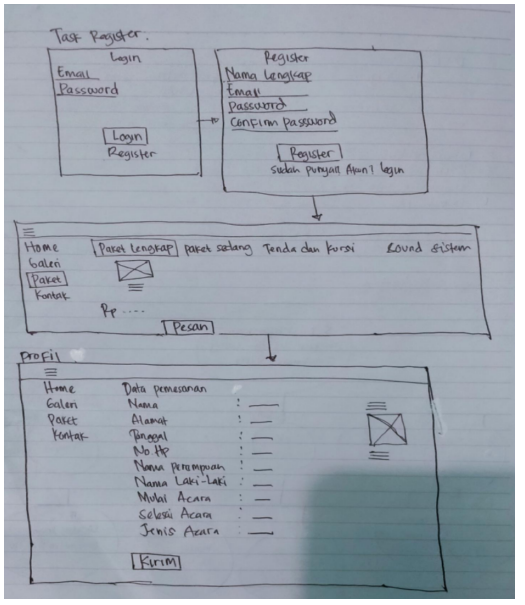 Task Register.
Login
Email
Password
Login
Register
Register
Nama Lengkap
Email
Password
Confirm password
Register
sudah punya Akun? login
Home
Galeri
Paket
Kontak
Paket Lengkap paket sedang Tenda dan Kursi Sound sistem
Rp ....
Pesan
Profil
Home
Galeri
Paket
Kontak
Data pemesanan
Nama :
Alamat :
Tanggal :
No. Hp :
Nama perempuan :
Nama Laki-Laki :
Mulai Acara :
Selesai Acara :
Jenis Acara :
Kirim